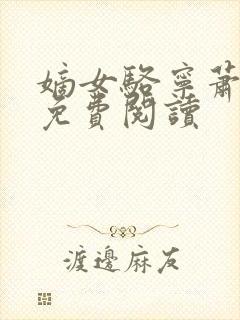 嫡女駱寧蕭
免費閱讀
渡邊麻友